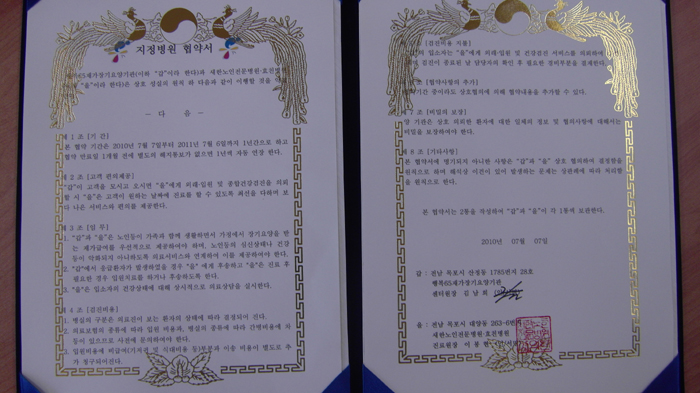 지정병원 협약서
행복65재가장기요양기관(이하 "갑"이라 한다)과 새한노인전문병원·호진병원
"을"이라 한다)은 상호 성실의 원칙 하 다음과 같이 이행할 것을
- 다 음 -
제 1 조 [기 간]
본 협약 기간은 2010년 7월 7일부터 2011년 7월 6일까지 1년간으로 하고
협약 만료일 1개월 전에 별도의 해지통보가 없으면 1년씩 자동 연장 한다.
제 2 조 [고객 편의제공]
"갑"이 고객을 모시고 오시면 "을"에게 외래·입원 및 종합건강검진을 의뢰
할 시 "을"은 고객이 원하는 날짜에 진료를 할 수 있도록 최선을 다하며 보
다 나은 서비스와 편의를 제공한다.
제 3 조 [임 무]
1. "갑"과 "을"은 노인등이 가족과 함께 생활하면서 가정에서 장기요양을 받
는 재가급여를 우선적으로 제공하여야 하며, 노인등의 심신상태나 건강
등이 악화되지 아니하도록 의료서비스와 연계하여 이를 제공하여야 한다.
2. "갑"에서 응급환자가 발생하였을 경우 "을" 에게 후송하고 "을"은 진료 후
필요한 경우 입원치료를 하거나 후송하도록 한다.
3. "을"은 입소자의 건강상태에 대해 상시적으로 의료상담을 실시한다.
제 4 조 [검진비용]
1. 병실의 구분은 의료진이 보는 환자의 상태에 따라 결정되어 진다.
2. 의료보험의 종류에 따라 입원 비용과, 병실의 종류에 따라 간병비용에 차
등이 있으므로 사전에 문의하여야 한다.
3. 입원비용에 비급여(기저귀 및 식대비용 등)부분과 이송 비용이 별도로 추
가 청구되어진다.
조 [검진비용 지불]
의 입소자는 "을"에게 외래·입원 및 건강검진 서비스를 의뢰하여
검진이 종료된 날 담당자의 확인 후 필요한 경비부분을 결제한다.
조 [협약사항의 추가]
기간 중이라도 상호협의에 의해 협약내용을 추가할 수 있다.
제 7 조 [비밀의 보장]
양 기관은 상호 의뢰한 환자에 대한 일체의 정보 및 협의사항에 대해서는
비밀을 보장하여야 한다.
제 8 조 [기타사항]
본 협약서에 명기되지 아니한 사항은 "갑"과 "을" 상호 협의하여 결정함을
원칙으로 하며 해석상 이견이 있어 발생하는 문제는 상관례에 따라 처리함
을 원칙으로 한다.
본 협약서는 2통을 작성하여 "갑"과 "을"이 각 1통씩 보관한다.
2010년 07월 07일
갑 : 전남 목포시 산정동 1785번지 28호
행복65재가장기요양기관
센터원장 김 남 희
을 : 전남 목포시 대양동 263-6번지
새한노인전문병원·호진병원
진료원장 이 봉 현